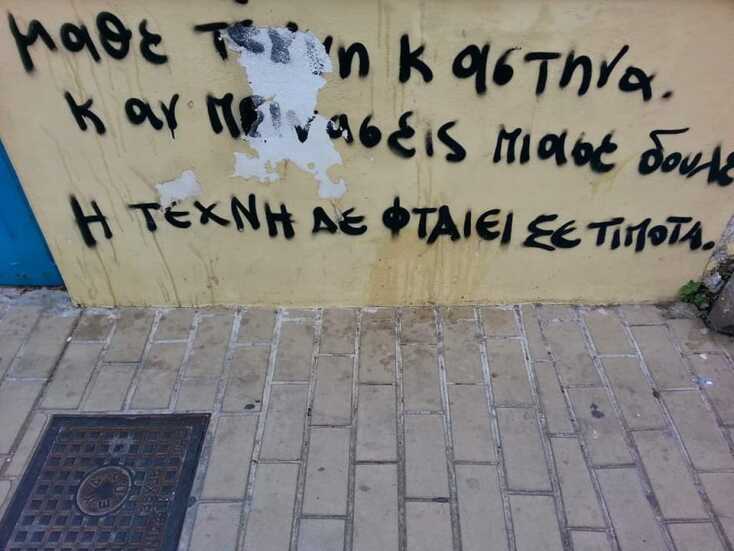 μαθε τέχνη κ αστηνα.
κ αν πεινασεις πιασε δουλε
Η ΤΕΧΝΗ ΔΕ ΦΤΑΙΕΙ ΣΕ ΤΙΠΟΤΑ.